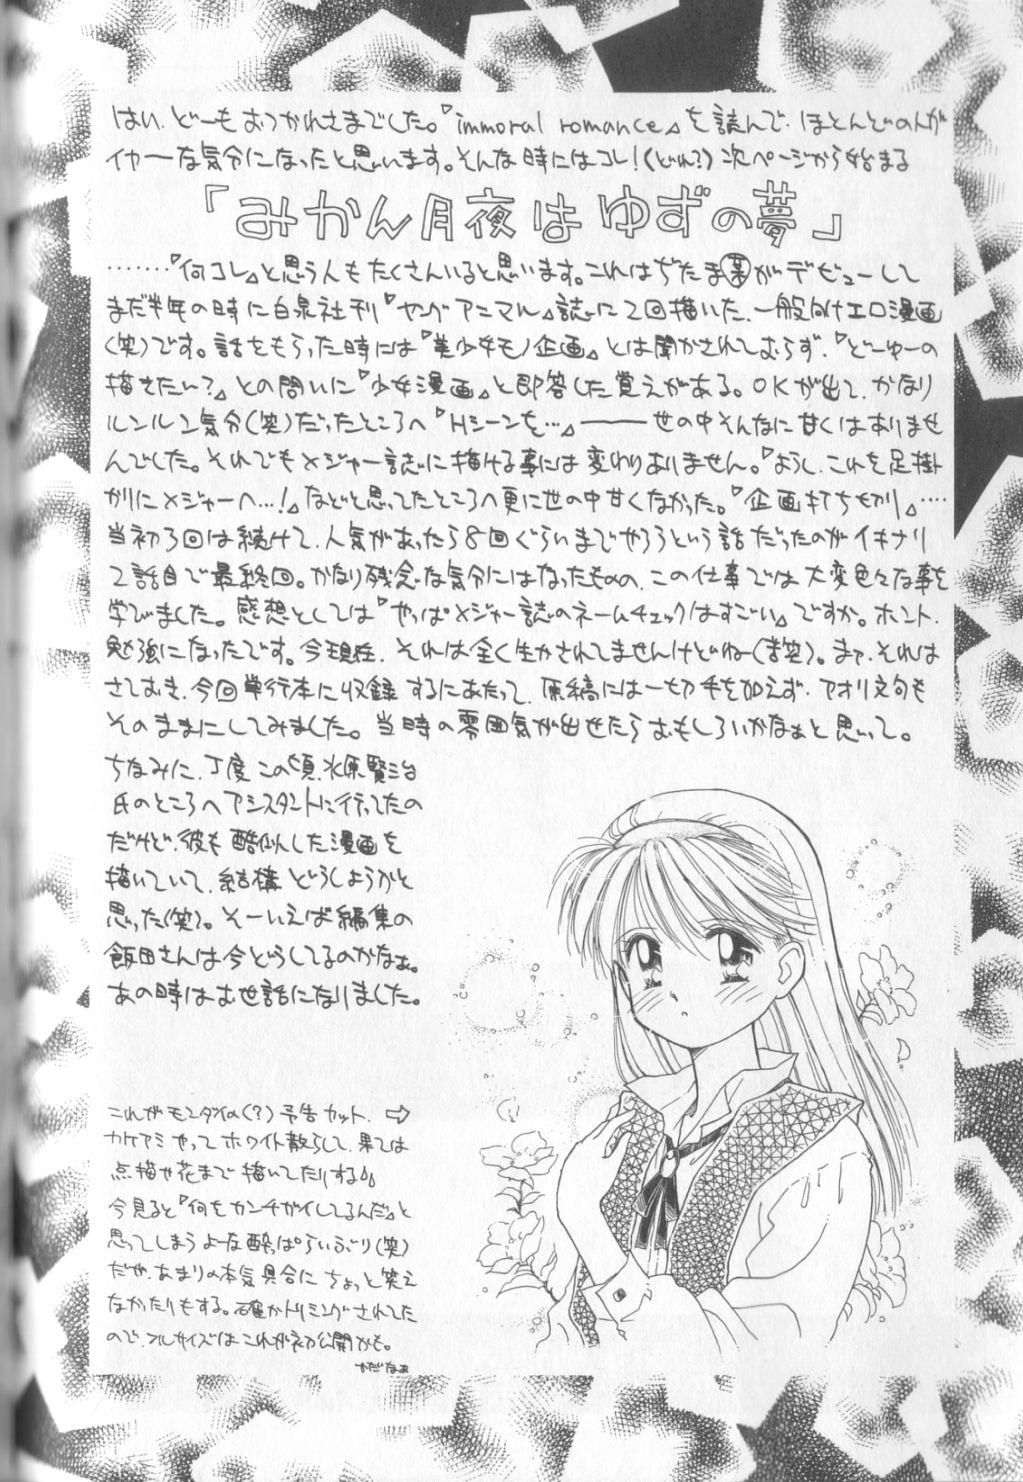 はい、どーもおつかれさまでした。『immoral romance』を読んで、ほとんどの人が
イヤーな気分になったと思います。そんな時にはコレ!(どれ?)次ページから始まる
「みかん月夜はゆずの夢」
……『何コレ』と思う人もたくさんいると思います。これはぢたま(某)がデビューして
まだ半年の時に白泉社刊『ヤングアニマル』誌に2回描いた、一般向けエロ漫画
(笑)です。話をもらった時には『美少女モノ企画』とは聞かされておらず、『どーゆーの
描きたい?』との問いに『少女漫画』と即答した覚えがある。OKが出て、かなり
ルンルン気分(笑)だったところへ『Hシーンを…』――世の中そんなに甘くはありませ
んでした。それでもメジャー誌に描ける事には変わりありません。『ようし、これを足掛
かりにメジャーへ…!』などと思ってたところへ更に世の中甘くなかった。『企画打ち切り』…
当初3回は続けて、人気があったら8回ぐらいまでやろうという話だったのがイキナリ
2話目で最終回。かなり残念な気分にはなったものの、この仕事では大変色々な事を
学びました。感想としては『やっぱメジャー誌のネームチェックはすごい』ですか。ホント、
勉強になったです。今現在、それは全く生かされてませんけどねー(苦笑)。まァ、それは
さておき、今回単行本に収録するにあたって、原稿には一切手を加えず、アオリ文句も
そのままにしてみました。当時の雰囲気が出せたらおもしろいかなぁと思って。
ちなみに、丁度この頃、水原賢治
氏のところへアシスタントに行ってたの
だけど、彼も酷似した漫画を
描いていて、結構どうしようかと
思った(笑)。そーいえば編集の
飯田さんは今どうしてるのかなぁ。
あの時はお世話になりました。
これがモンダイの(?)予告カット。⇨
カケアミやってホワイト散らして、果ては
点描や花まで描いてたりする。
今見ると『何をカンチガイしてるんだ』と
思ってしまうよーな酔っぱらいぶり(笑)
だが、あまりの本気具合にちょっと笑え
なかったりもする。確かトリミングされてた
ので、フルサイズはこれが初公開かも。
かだなぁ